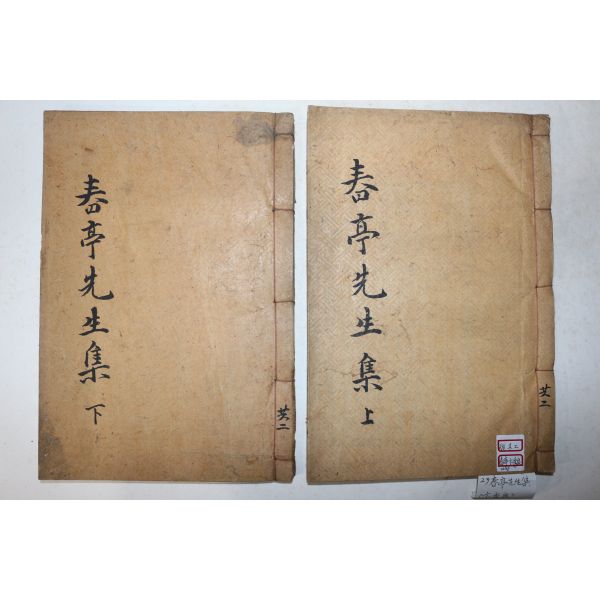 春亭先生集
下
共二
春亭先生集
上
共二
29 春亭先生集